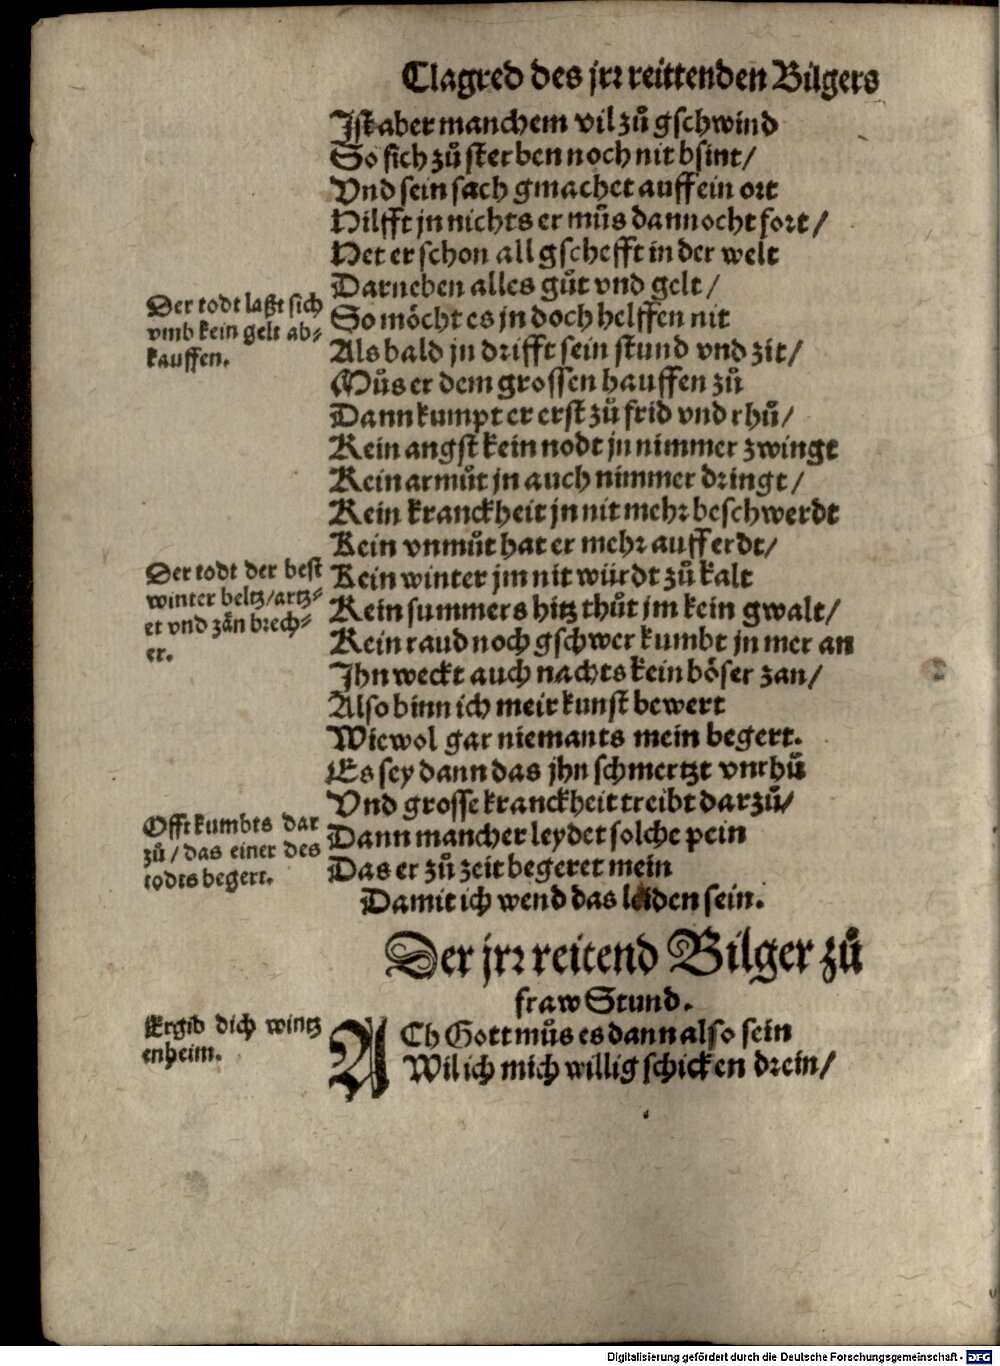 Clagred des jrr reittenden Bilgers
Ist aber manchem vil zů gschwind
So sich zů sterben noch nit bsint/
Vnd sein sach gmachet auff ein ort
Hilfft jn nichts er můs dannocht fort/
Het er schon all gschefft in der welt
Darneben alles gůt vnd gelt/
Der todt laßt sich
vmb kein gelt ab-
kauffen.
So möcht es jn doch helffen nit
Als bald jn drifft sein stund vnd zit/
Můs er dem grossen hauffen zů
Dann kumpt er erst zů frid vnd rhů/
Kein angst kein nodt jn nimmer zwingt
Kein armůt jn auch nimmer dringt/
Kein kranckheit jn nit mehr beschwerdt
Kein vnmůt hat er mehr auff erdt/
Der todt der best
winter beltz/artz-
et vnd zän brech-
er.
Kein winter jm nit würdt zů kalt
Kein summers hitz thůt jm kein gwalt/
Kein raud noch gschwer kumbt jn mer an
Ihn weckt auch nachts kein böser zan/
Also binn ich meir kunst bewert
Wiewol gar niemants mein begert.
Es sey dann das jhn schmertzt vnrhů
Vnd grosse kranckheit treibt darzů/
Offt kumbts dar
zů/das einer des
todts begert.
Dann mancher leydet solche pein
Das er zů zeit begeret mein
Damit ich wend das leiden sein.
Der jrr reitend Bilger zů
fraw Stund.
Ergib dich wintz
enheim.
ACh Gott můs es dann also sein
Wil ich mich willig schicken drein/
Digitalisierung gefördert durch die Deutsche Forschungsgemeinschaft - DFG